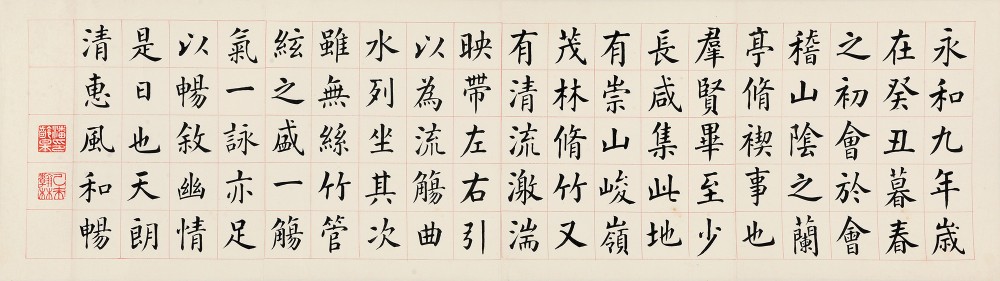 永和九年歳
在癸丑暮春
之初會於會
稽山陰之蘭
亭脩禊事也
羣賢畢至少
長咸集此地
有崇山峻嶺
茂林脩竹又
有清流激湍
映帶左右引
以為流觴曲
水列坐其次
雖無絲竹管
絃之盛一觴
一詠亦足
以暢敘幽情
是日也天朗
清惠風和暢